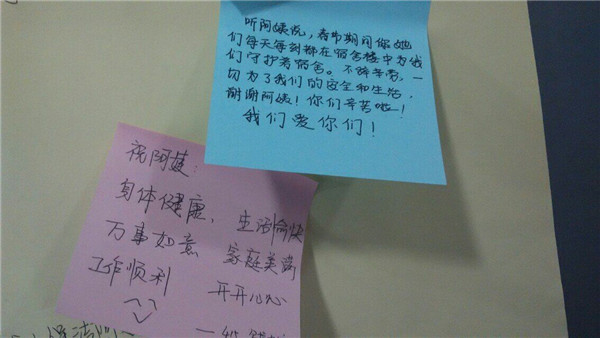 听阿姨说，春节期间你她
们每天每刻都在宿舍楼中为我
们守护着宿舍。不辞辛劳，一
切为了我们的安全和生活，
谢谢阿姨！你们辛苦啦！
我们爱你们！
祝阿姨：
身体健康，生活愉快
万事如意 家庭美满
工作顺利 开开心心